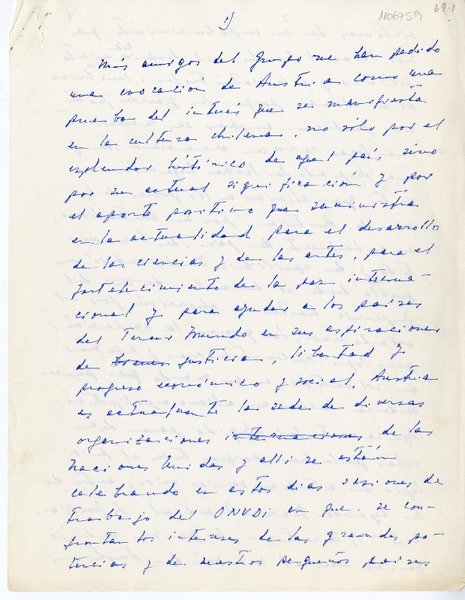 1)
1106759
69.1
Más amigos del Grupo me han pedido
una evocación de Austria como una
prueba del interés que se manifiesta
en la cultura chilena, no sólo por el
esplendor histórico de aquel país sino
por su actual significación y por
el aporte positivo que suministra
en la actualidad para el desarrollo
de las ciencias y de las artes, para el
fortalecimiento de la paz interna-
cional y para ayudar a los países
del Tercer Mundo en sus aspiraciones
de justicia, libertad y
progreso económico y social. Austria
es actualmente la sede de diversas
organizaciones internacionales de las
Naciones Unidas y allí se están
celebrando en estos días sesiones de
trabajo del ONUDI en que se con-
frontan los intereses de las grandes po-
tencias y de nuestros pequeños países